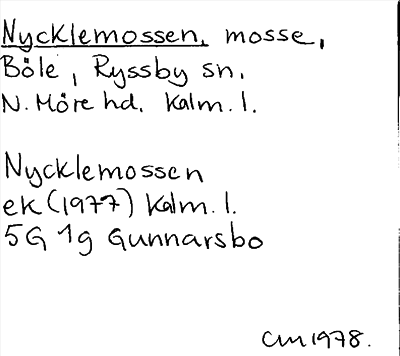 Nycklemossen, mosse,
Böle, Ryssby sn.
N. Möre hd. Kalm. l.
Nycklemossen
ek (1977) Kalm. l.
5G 1g Gunnarsbo
CM 1978.